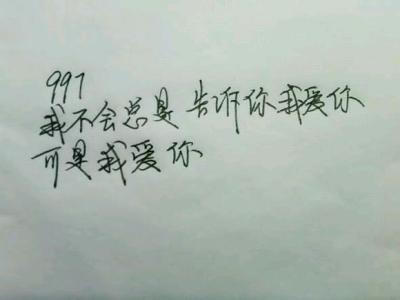 997
我不会总是告诉你我爱你
可是我爱你